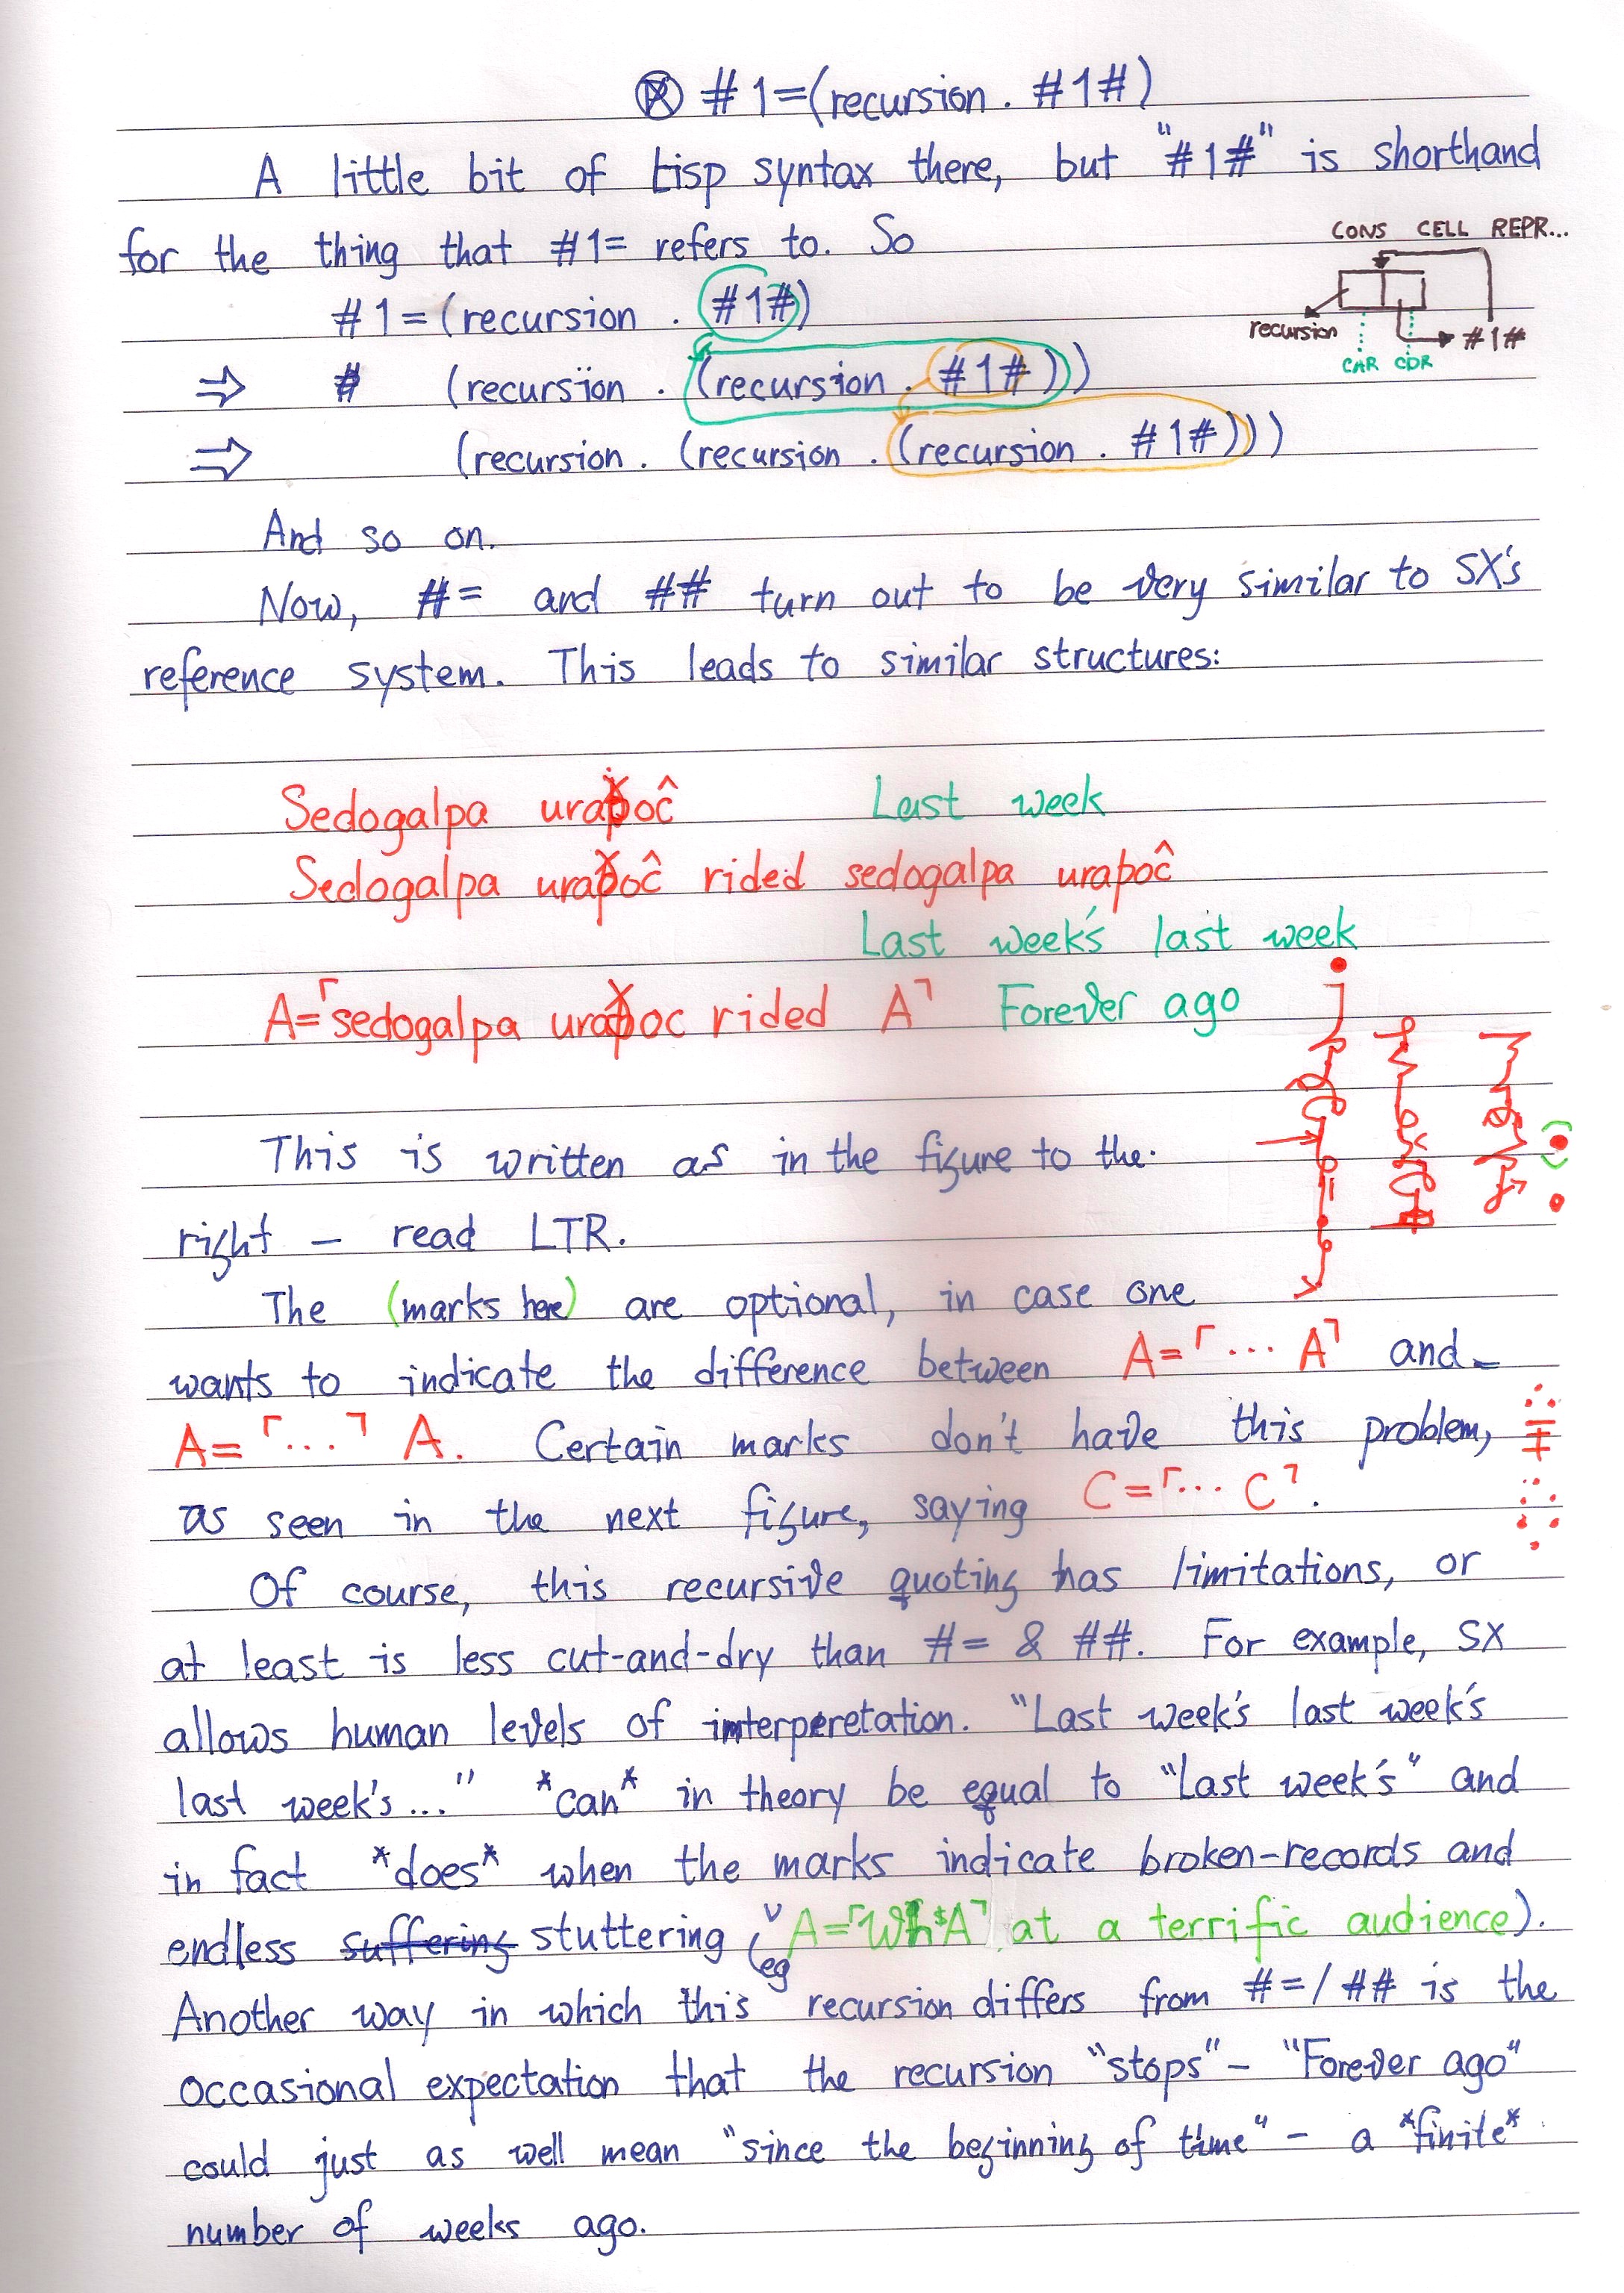 #1=(recursion . #1#)
A little bit of Lisp syntax there, but "#1#" is shorthand
for the thing that #1= refers to. So
CONS CELL REPR...
#1=(recursion . #1#)
recursion
#1#
CAR CDR
⇒ # (recursion . (recursion . #1#))
⇒ (recursion . (recursion . (recursion . #1#)))
And so on.
Now, #= and ## turn out to be very similar to SX's
reference system. This leads to similar structures:
Sedogalpa Last week
Sedogalpa rided sedogalpa uraþoĉ
Last week's last week
A=「sedogalpa rided A」 Forever ago
This is written as in the figure to the
right – read LTR.
The (marks here) are optional, in case one
wants to indicate the difference between A=「... A」 and
A=「...」 A. Certain marks don't have this problem,
as seen in the next figure, saying C=「... C」.
Of course, this recursive quoting has limitations, or
at least is less cut-and-dry than #= & ##. For example, SX
allows human levels of interperetation. "Last week's last week's
last week's..." *can* in theory be equal to "Last week's" and
in fact *does* when the marks indicate broken-records and
endless suffering stuttering (eg at a terrific audience).
Another way in which this recursion differs from #=/## is the
occasional expectation that the recursion "stops" – "Forever ago"
could just as well mean "since the beginning of time" – a *finite*
number of weeks ago.